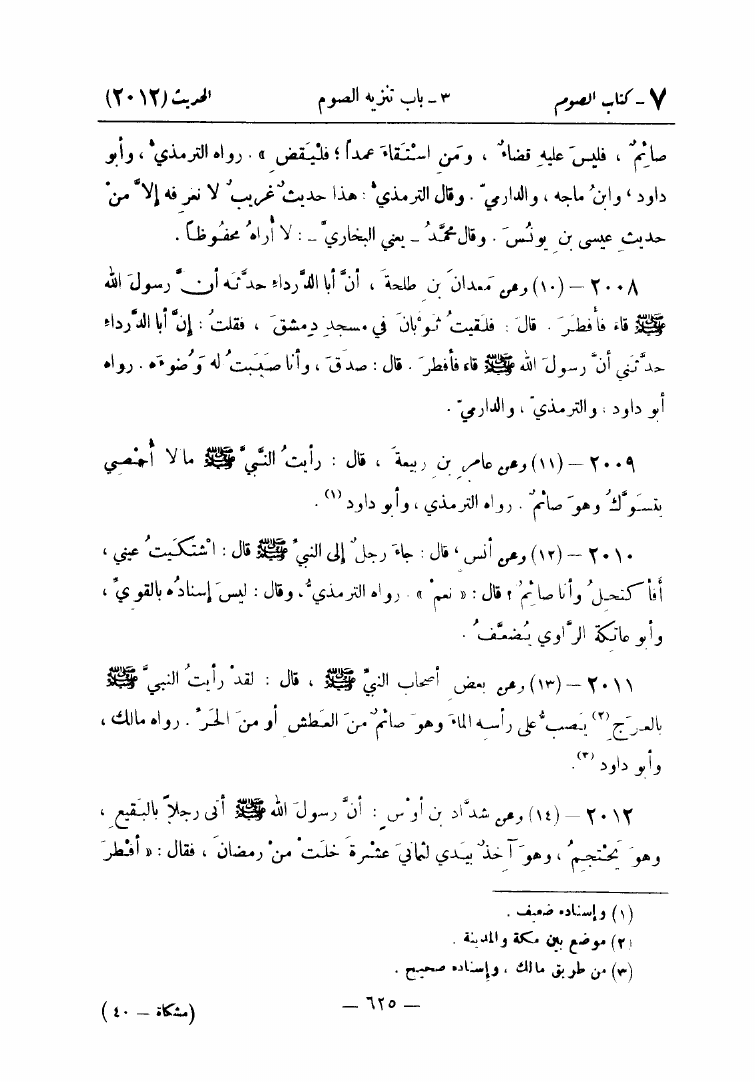 ٧ - كتاب الصوم ٣ - باب تنزيه الصوم الحديث (٢٠١٢)
صائمٌ ، فليسَ عليهِ قضاءٌ ، ومَنِ استَقاءَ عمداً ؛ فليَقضِ » . رواه الترمذيُّ ، وأبو
داود ، وابنُ ماجه ، والدارميّ . وقال الترمذيُّ : هذا حديثٌ غريبٌ لا نعرِفه إلاَّ منْ
حديثِ عيسى بنِ يونُسَ . وقال محمَّدٌ ـ يعني البخاريَّ ـ : لا أُراهُ محفُوظاً .
٢٠٠٨ – (١٠) وعن مَعدانَ بنِ طلحةَ ، أنَّ أبا الدَّرداءِ حدَّثَه أنَّ رسولَ الله
ﷺ قاءَ فأَفطَرَ . قالَ : فلقيتُ ثَوْبانَ في مسجدِ دِمشقَ ، فقلتُ : إنَّ أبا الدَّرداءِ
حدَّثَني أنَّ رسولَ الله ﷺ قاءَ فأفطرَ . قال : صدَقَ ، وأنا صَبَبتُ له وَضُوءَه . رواه
أبو داود ، والترمذيّ ، والدارميّ .
٢٠٠٩ – (١١) وعن عامرِ بنِ ربيعةَ ، قال : رأيتُ النَّبيَّ ﷺ ما لا أُحْصِي
يتسَوَّكُ وهوَ صائمٌ . رواه الترمذي ، وأبو داود (١) .
٢٠١٠ – (١٢) وعن أنسٍ ، قال : جاءَ رجلٌ إلى النبيِّ ﷺ قال : اشْتكَيتُ عيني ،
أفأَكتحِلُ وأنا صائمٌ ؟ قال : « نعمْ » . رواه الترمذيُّ ، وقال : ليسَ إسنادُه بالقويِّ ،
وأبو عاتِكة الرَّاوي يُضعَّفُ .
٢٠١١ – (١٣) وعن بعضِ أصحاب النبيِّ ﷺ ، قال : لقدْ رأيتُ النبيَّ ﷺ
بالعرَجِ (٢) يَصبُّ على رأسِه الماءَ وهوَ صائمٌ منَ العَطشِ أو منَ الحَرِّ . رواه مالك ،
وأبو داود (٣) .
٢٠١٢ – (١٤) وعن شدَّاد بن أوْسٍ : أنَّ رسولَ الله ﷺ أتى رجلاً بالبَقيعِ ،
وهوَ يَحْتجِمُ ، وهوَ آخِذٌ بيَدي لثمانيَ عشْرةَ خلَتْ منْ رمضانَ ، فقال : « أفْطرَ
(١) وإسناده ضعيف .
(٢) موضع بين مكة والمدينة .
(٣) من طريق مالك ، وإسناده صحيح .
– ٦٢٥ –
(مشكاة – ٤٠)